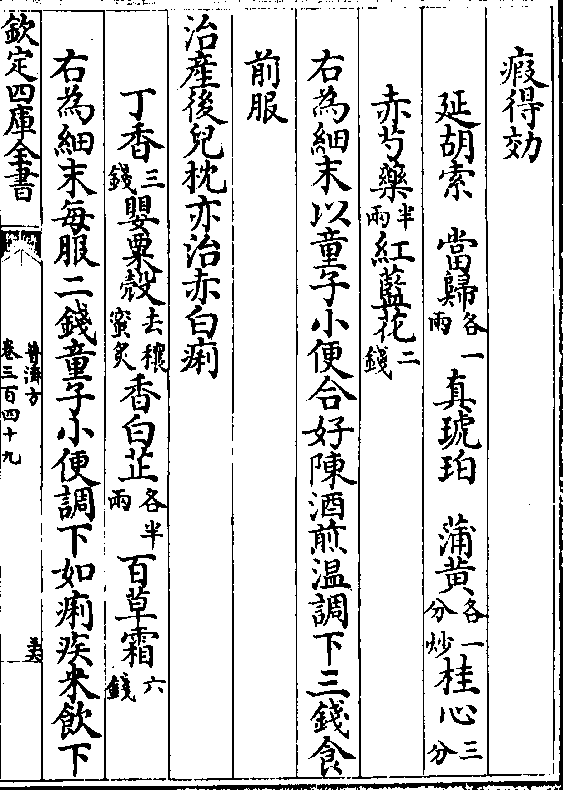 瘕得効
延胡索　當歸各一兩　真琥珀　蒲黄各一分炒　桂心三分
赤芍藥半兩　紅藍花二錢
右為細末以童子小便合好陳酒煎温調下三錢食
前服
治產後兒枕亦治赤白痢
丁香三錢　嬰粟殻去穰蜜炙　香白芷各半兩　百草霜六錢
右為細末每服二錢童子小便調下如痢疾米飲下
欽定四庫全書
普濟方
卷三百四十九